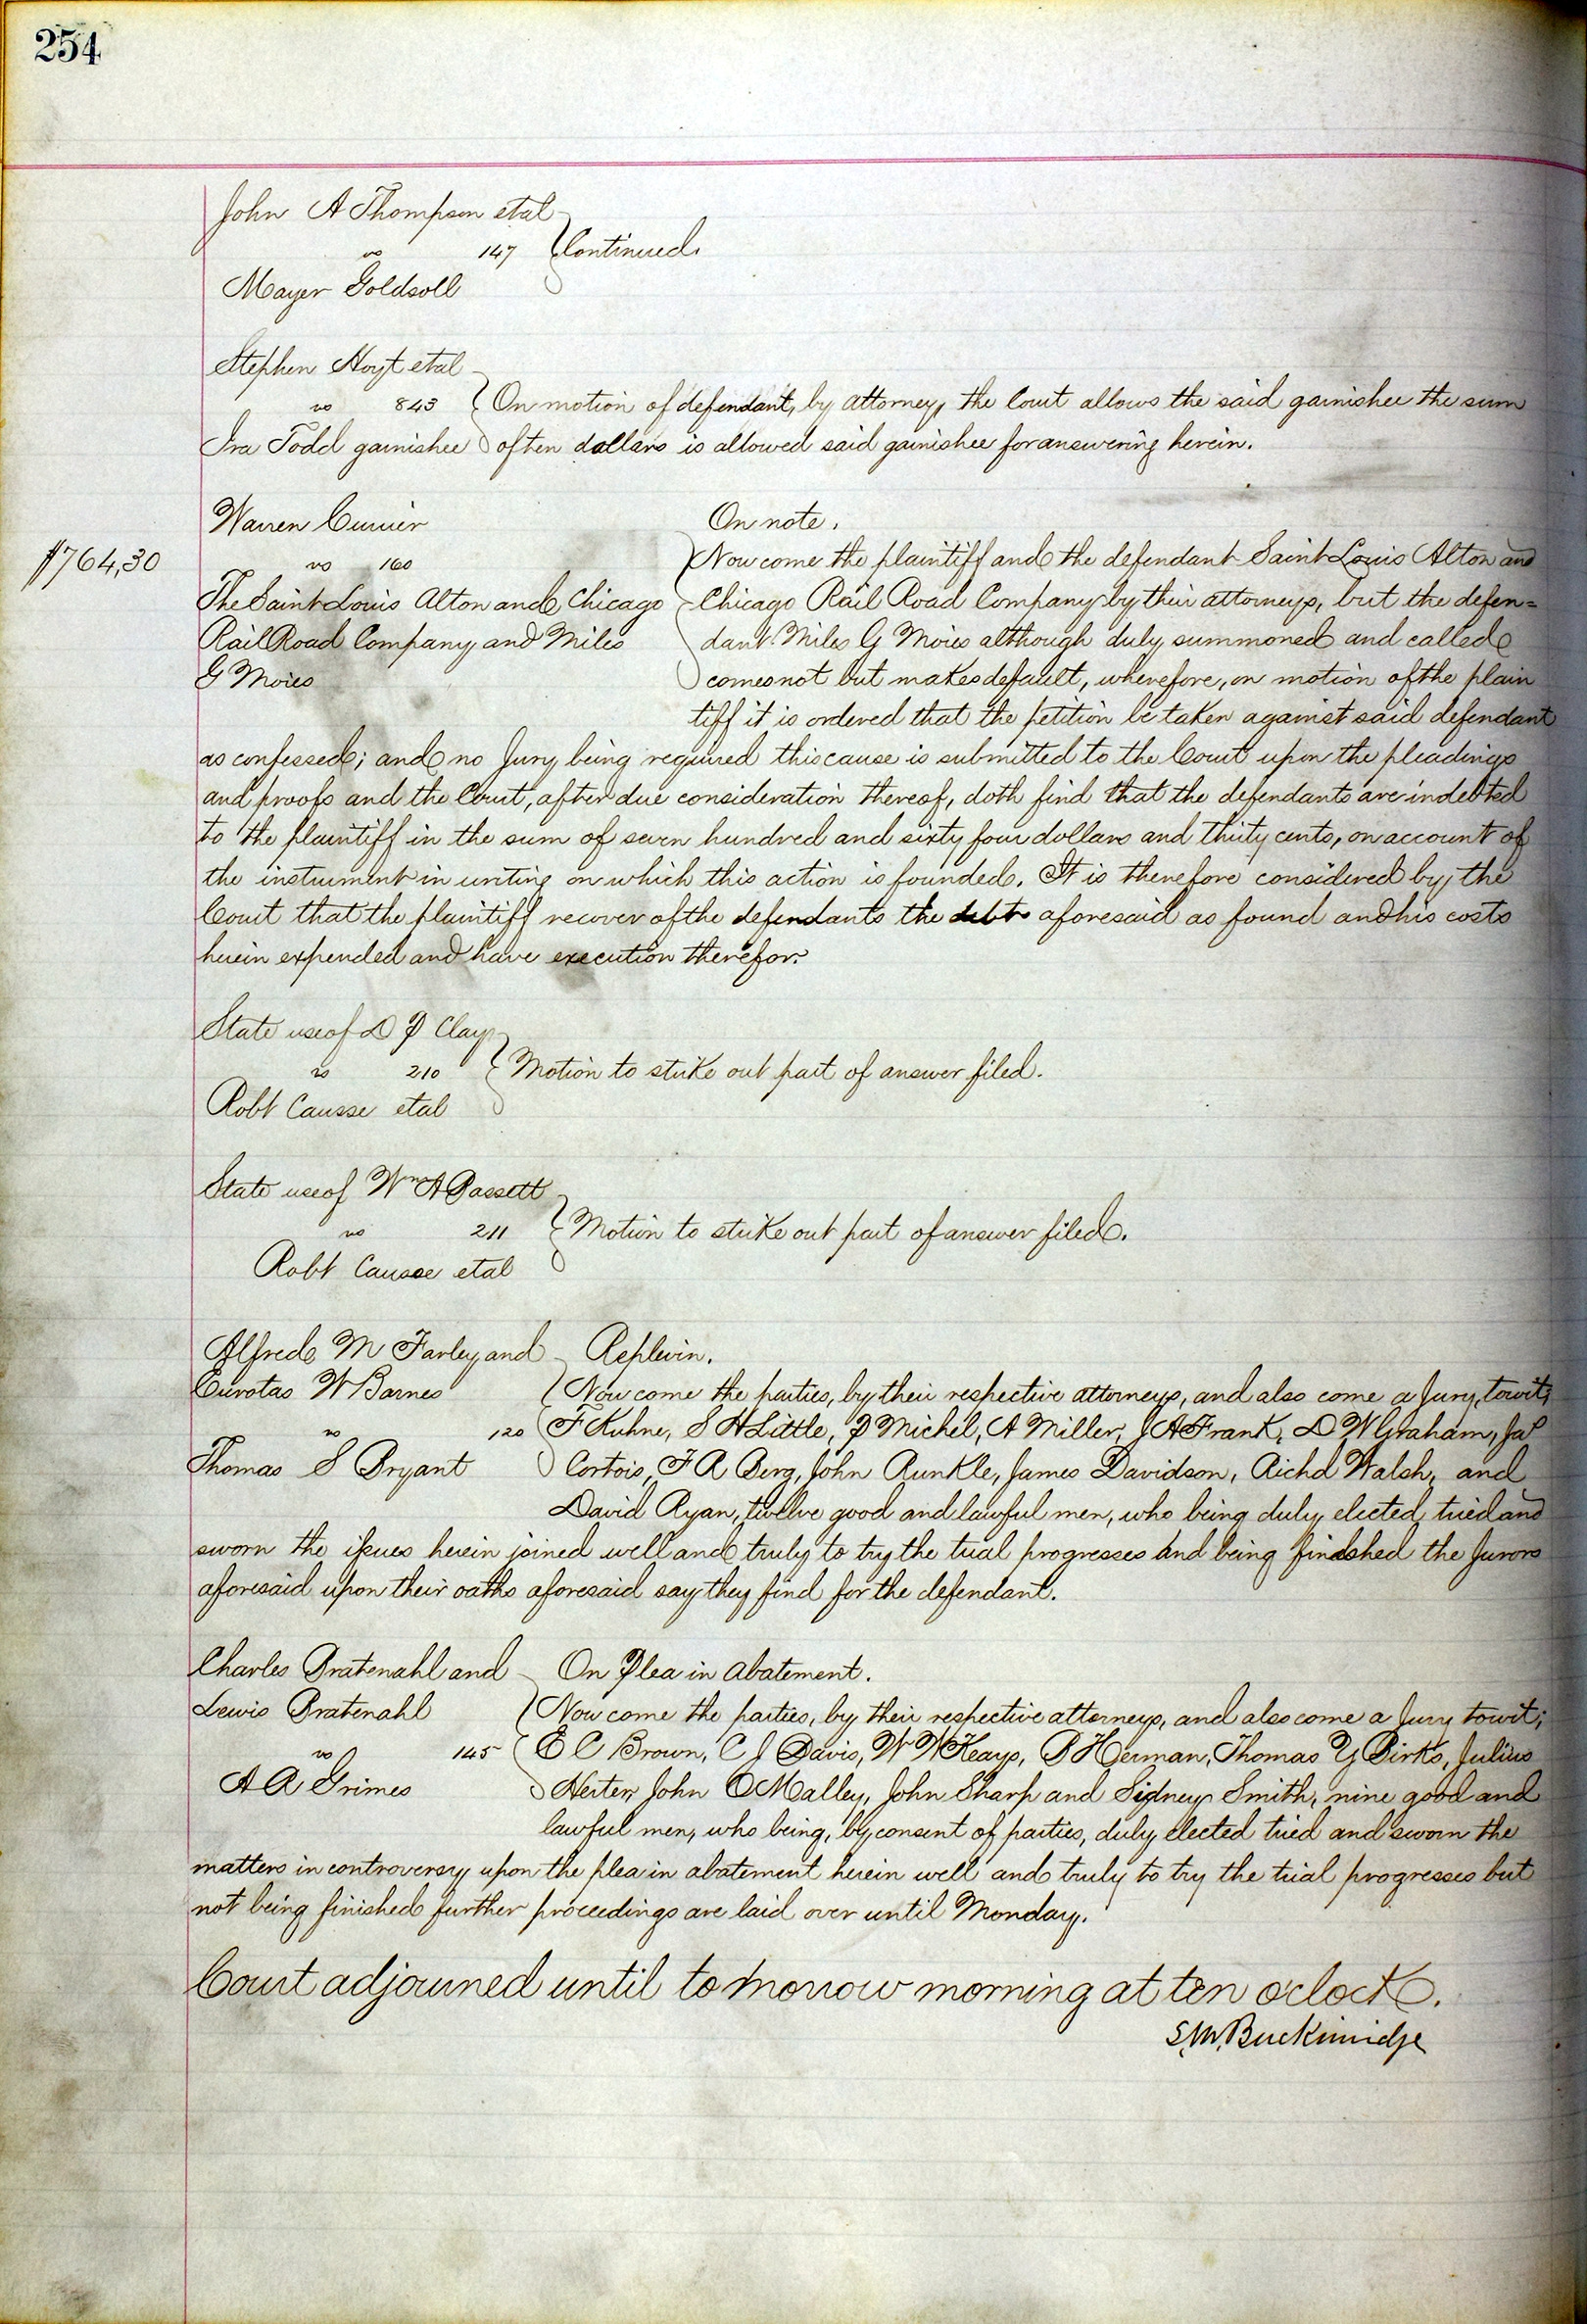 254
John A Thompson etal
vs 147 Continued.
Mayer Goldsoll
Stephen Hoyt etal
vs 843 On motion of defendant, by attorney, the Court allows the said garnishee the sum
Ira Todd garnishee of ten dollars is allowed said garnishee for answering herein.
Warren Currier On note.
$764,30 vs 160 Now come the plaintiff and the defendant Saint Louis Alton and
The Saint Louis Alton and Chicago Chicago Rail Road Company by their attorneys, but the defen=
Rail Road Company and Miles dant Miles G Moies although duly summoned and called
G Moies comes not but makes default, wherefore, on motion of the plain
tiff it is ordered that the petition be taken against said defendant
as confessed; and no Jury being required this cause is submitted to the Court upon the pleadings
and proofs and the Court, after due consideration thereof, doth find that the defendants are indebted
to the plaintiff in the sum of seven hundred and sixty four dollars and thirty cents, on account of
the instrument in writing on which this action is founded. It is therefore considered by the
Court that the plaintiff recover of the defendants the debt aforesaid as found and his costs
herein expended and have execution therefor.
State use of D P Clay
vs 210 Motion to strike out part of answer filed.
Robt Causse etal
State use of Wm A Bassett
vs 211 Motion to strike out part of answer filed.
Robt Causse etal
Alfred M Farley and Replevin.
Eurotas W Barnes Now come the parties, by their respective attorneys, and also come a Jury, towit;
vs 120 F Kuhne, S H Little, P Michel, A Miller, J A Frank, D W Graham, Jas
Thomas S Bryant Cortois, F R Berg, John Runkle, James Davidson, Richd Walsh, and
David Ryan, twelve good and lawful men, who being duly elected tried and
sworn the issues herein joined well and truly to try the trial progresses and being finished the Jurors
aforesaid upon their oaths aforesaid say they find for the defendant.
Charles Bratenahl and On Plea in Abatement.
Lewis Bratenahl Now come the parties, by their respective attorneys, and also come a Jury towit;
vs 145 E C Brown, C J Davis, W W Keays, B Herman, Thomas Y Birks, Julius
A R Grimes Herter, John O Malley, John Sharp and Sidney Smith, nine good and
lawful men, who being, by consent of parties, duly elected tried and sworn the
matters in controversy upon the plea in abatement herein well and truly to try the trial progresses but
not being finished further proceedings are laid over until Monday.
Court adjourned until to morrow morning at ten o'clock.
S. M. Breckinridge